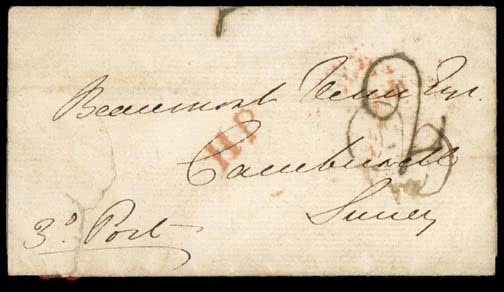 Beaumont Esqr.
HP
2
Camberwell
Surrey
3d Post